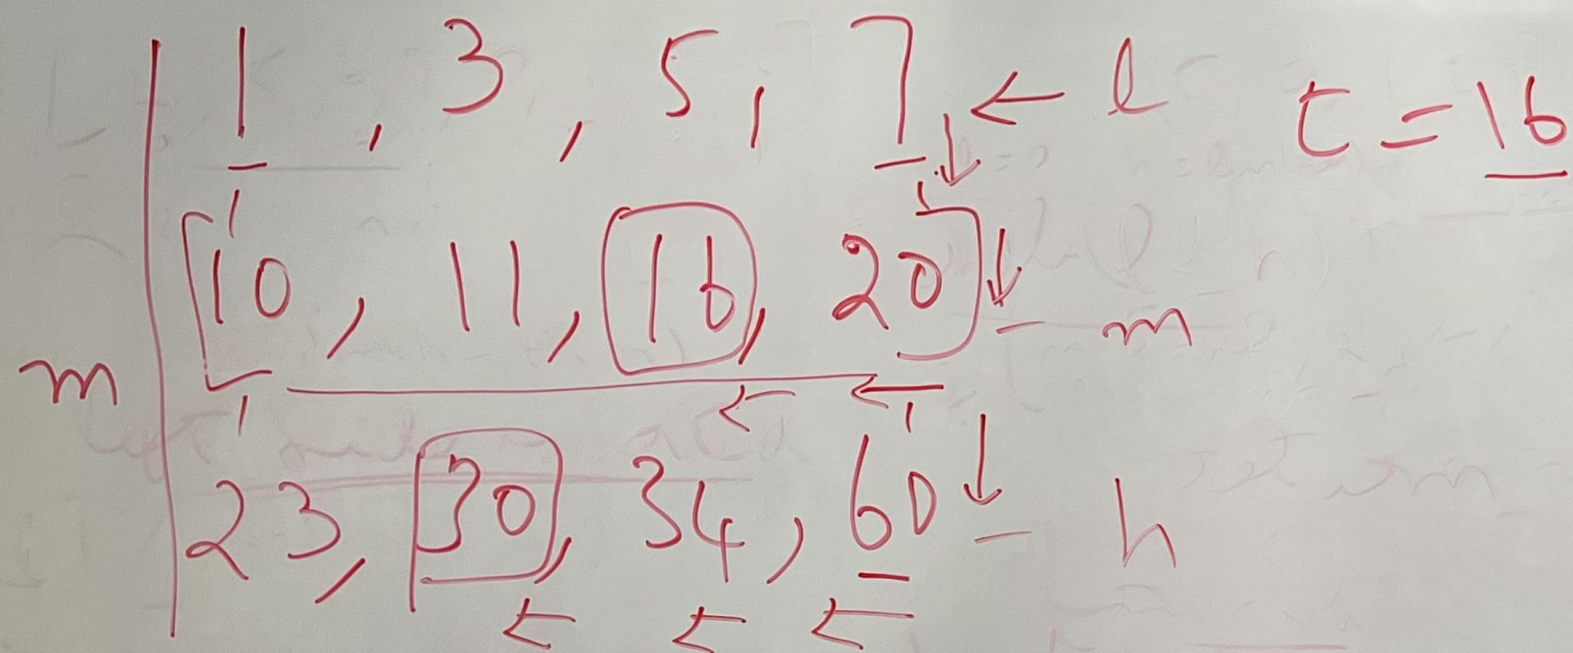 1, 3, 5, 7 ← l t = 16
10, 11, 16, 20 - m
m
23, 30, 34, 60 - h